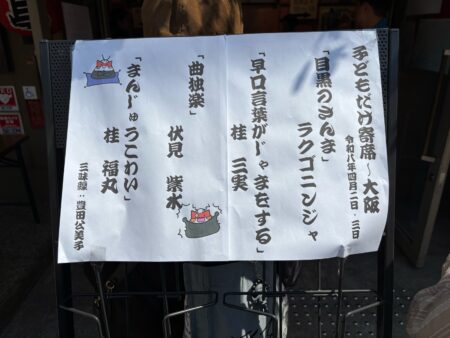 子どもだけ寄席〜大阪
令和八年四月二日・三日
「目黒のさんま」
ラクゴニンジャ
「早口言葉がじゃまをする」
桂　三実
「曲独楽」
伏見　紫水
「まんじゅうこわい」
桂　福丸
三味線：豊田公美子